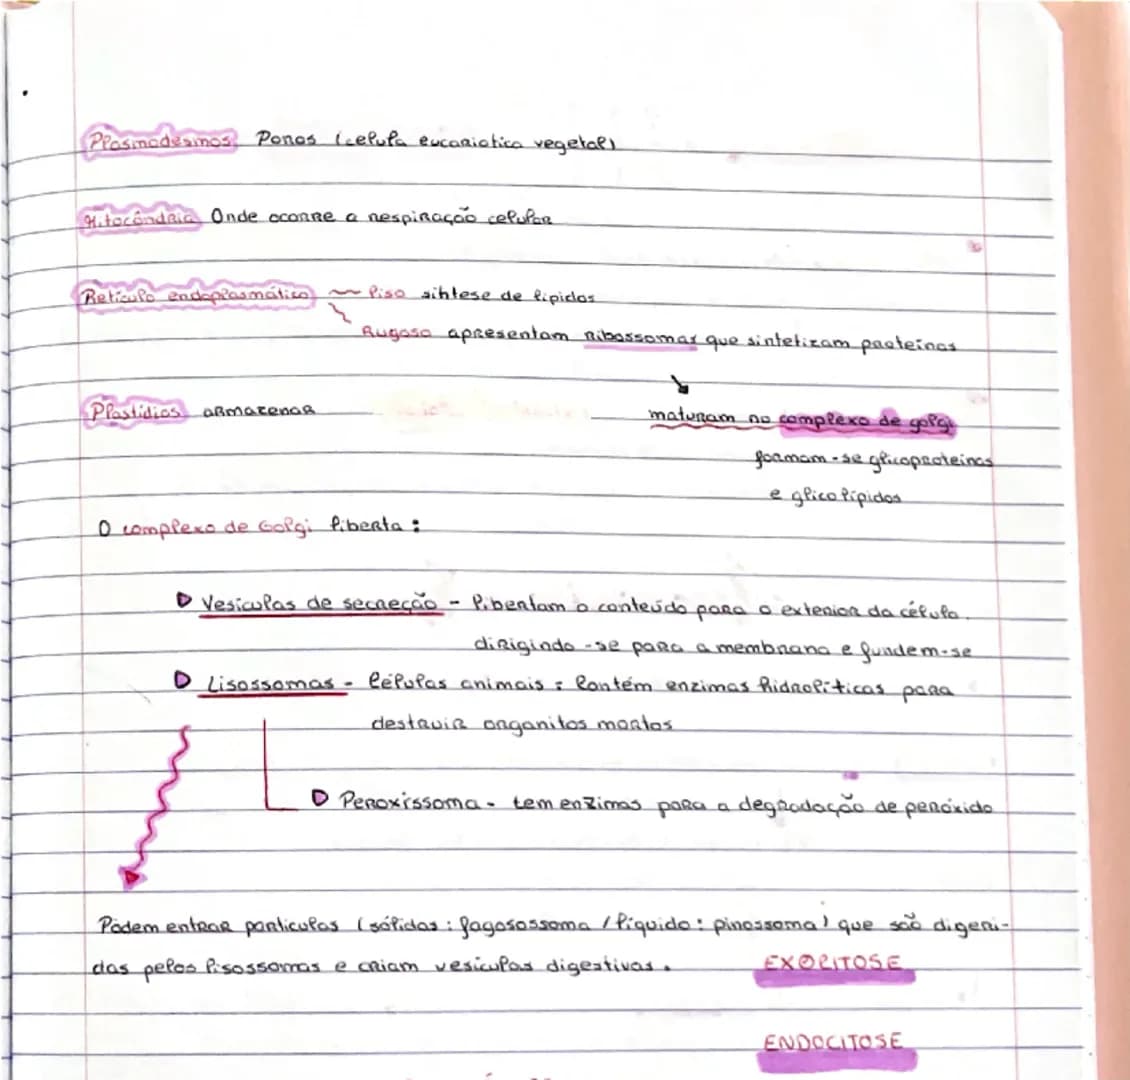 Plasmodesmos Poros (celula eucariotica vegetal)
Mitocôndria Onde ocorre a respiração celular
Retículo endoplasmático liso síntese de lipidos
Rugoso apresentam ribossomas que sintetizam proteínas
Plastídios armazenar
maturam no complexo de golgi
formam-se glicoproteínas
e glicolípidos
O complexo de Golgi liberta:
Vesículas de secreção - libertam o conteúdo para o exterior da célula.
dirigindo-se para a membrana e fundem-se
Lisossomas - Células animais: Contém enzimas hidrolíticas para
destruir organitos mortos
Peroxissoma - tem enzimas para a degradação de peróxido
Podem entrar partículas (sólidas: fagosossoma / líquido: pinossoma) que são digeri-
das pelos lisossomas e criam vesículas digestivas.
EXOCITOSE
ENDOCITOSE